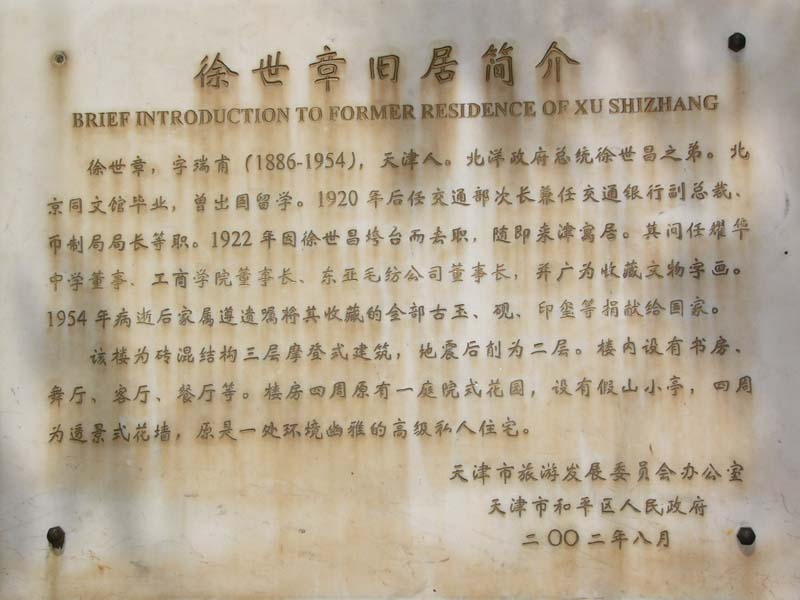 徐世章旧居简介
BRIEF INTRODUCTION TO FORMER RESIDENCE OF XU SHIZHANG
徐世章，字瑞甫（1886-1954），天津人。北洋政府总统徐世昌之弟。北
京同文馆毕业，曾出国留学。1920 年后任交通部次长兼任交通银行副总裁、
币制局局长等职。1922 年因徐世昌垮台而去职，随即来津寓居。其间任耀华
中学董事、工商学院董事长、东亚毛纺公司董事长，并广为收藏文物字画。
1954 年病逝后家属遵遗嘱将其收藏的全部古玉、砚、印玺等捐献给国家。
该楼为砖混结构三层摩登式建筑，地震后削为二层。楼内设有书房、
舞厅、客厅、餐厅等。楼房四周原有一庭院式花园，设有假山小亭，四周
为透景式花墙，原是一处环境幽雅的高级私人住宅。
天津市旅游发展委员会办公室
天津市和平区人民政府
二〇〇二年八月